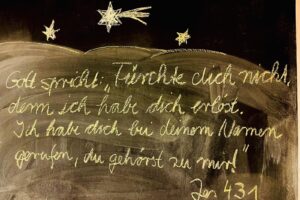 Gott spricht: „Fürchte dich nicht,
denn ich habe dich erlöst.
Ich habe dich bei deinem Namen
gerufen, du gehörst zu mir!"
Jes 43 1